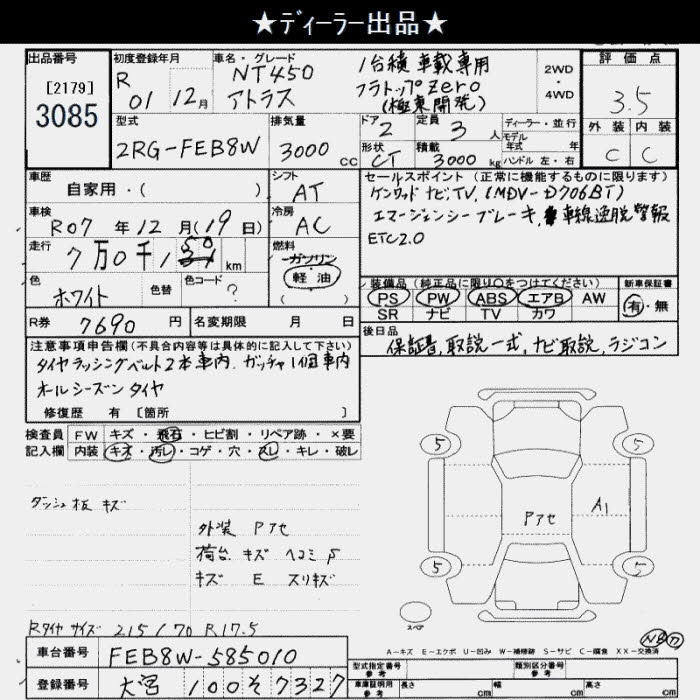 ★ディーラー出品★
出品番号
[2179]
3085
初度登録年月
R 01 12月
車名・グレード
NT450
アトラス
1台積 車載専用
フラトップZero
(極東開発)
2WD
4WD
評価点
3.5
外装 内装
C C
型式
2RG-FEB8W
排気量
3000 cc
ドア 2
形状 CT
定員 3 人
積載 3000 kg
ディーラー・並行
モデル
年式 年
ハンドル 左・右
車歴
自家用・( )
シフト
AT
車検
R07 年 12 月 (19 日)
冷房
AC
走行
7 万 0 千 150 km
燃料
ガソリン
軽油
( )
色
ホワイト
色替
色コード ?
R券 7690 円
名変期限 月 日
セールスポイント (正常に機能するものに限ります)
ケンウッド ナビ,TV, (MDV-D706BT)
エマージェンシーブレーキ, 車線逸脱警報
ETC2.0
装備品 (純正品に限り○をつけてください)
PS PW ABS エアB AW
SR ナビ TV カワ
新車保証書
有・無
後日品
保証書, 取説一式, ナビ取説, ラジコン
注意事項申告欄(不具合内容等は具体的に記入して下さい)
タイヤラッシングベルト2本車内. ガッチャ1個車内
オールシーズンタイヤ
修復歴 有 [箇所 ]
検査員
記入欄
FW キズ・飛石・ヒビ割・リペア跡・×要
内装 キズ・汚レ・コゲ・穴・スレ・キレ・破レ
ダッシュ板 キズ
外装 Pアセ
荷台 キズ ヘコミ
キズ E スリキズ
Rタイヤサイズ 215/70 R17.5
5 5
Pアセ A1
5 5
スペア
A-キズ E-エクボ U-凹み W-補修跡 S-サビ C-腐食 XX-交換済
車台番号 FEB8W-585010
登録番号 大宮 100 そ 7327
型式指定番号
参考
類別区分番号
参考
車庫証明用
参考
長さ cm 幅 cm 高さ cm